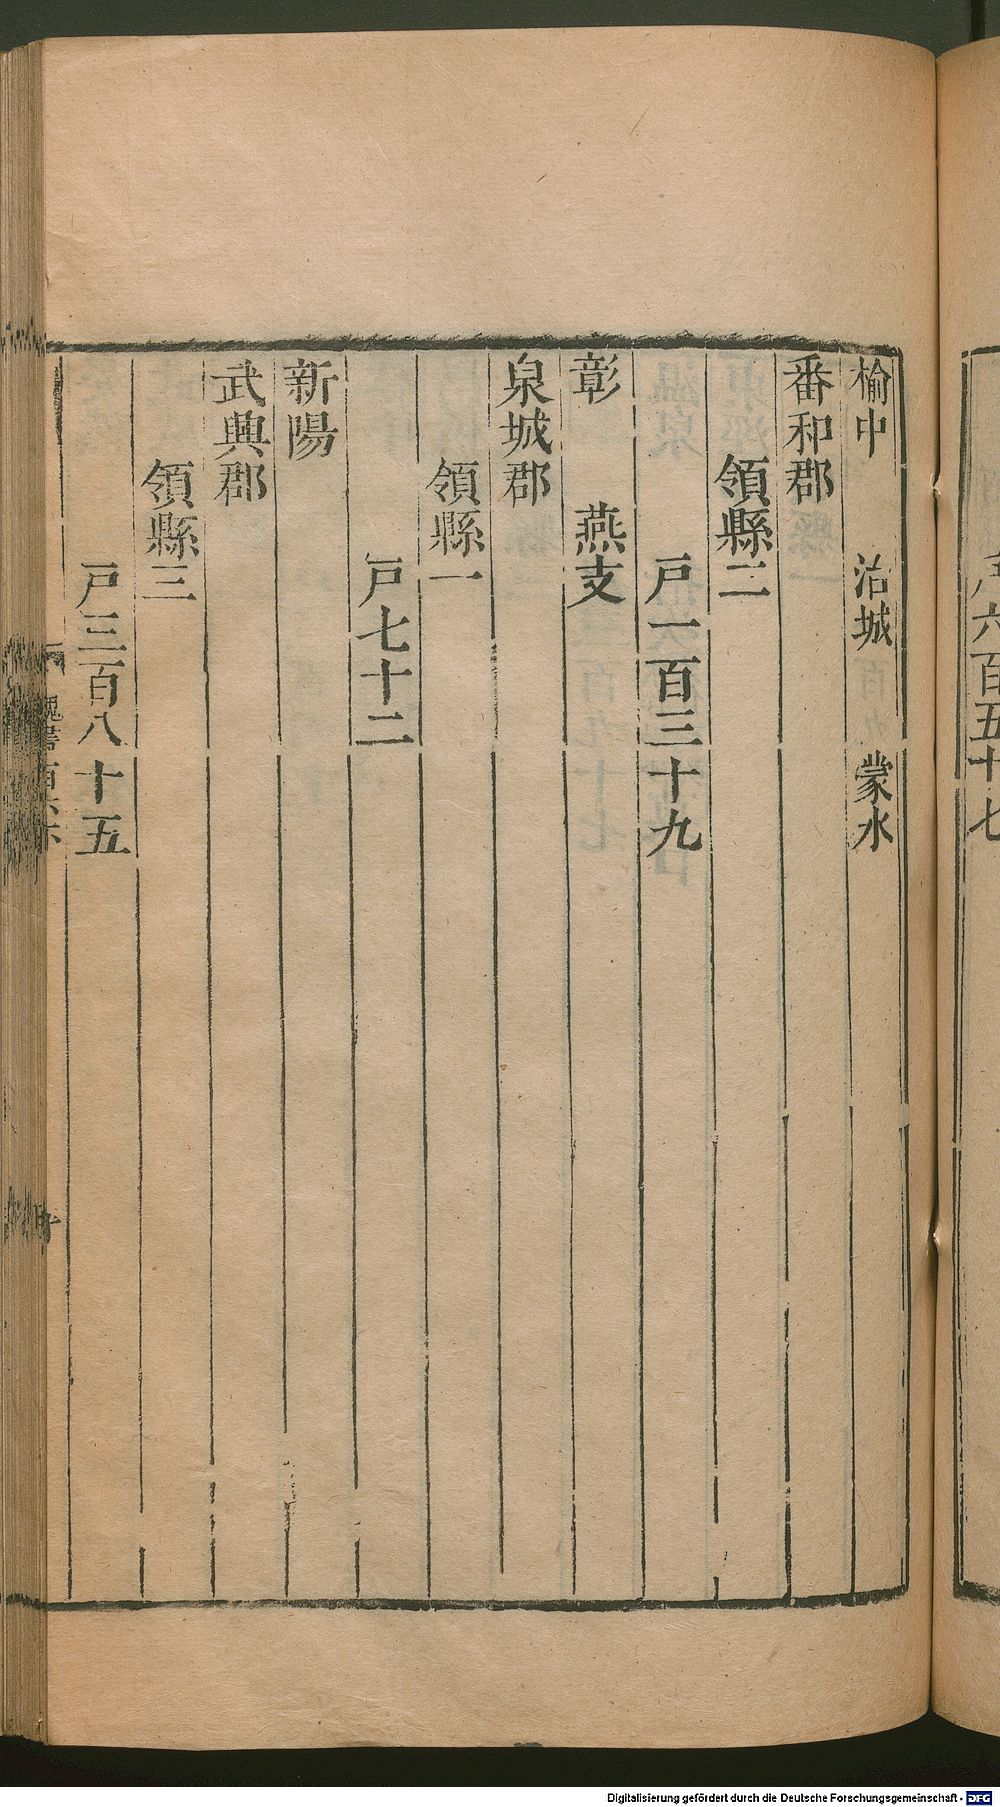 戸六百五十七
榆中 治城 蒙水
番和郡
領縣二
戸一百三十九
彰 燕支
泉城郡
領縣一
戸七十二
新陽
武興郡
領縣三
戸三百八十五
魏書百六
Digitalisierung gefördert durch die Deutsche Forschungsgemeinschaft - DFG